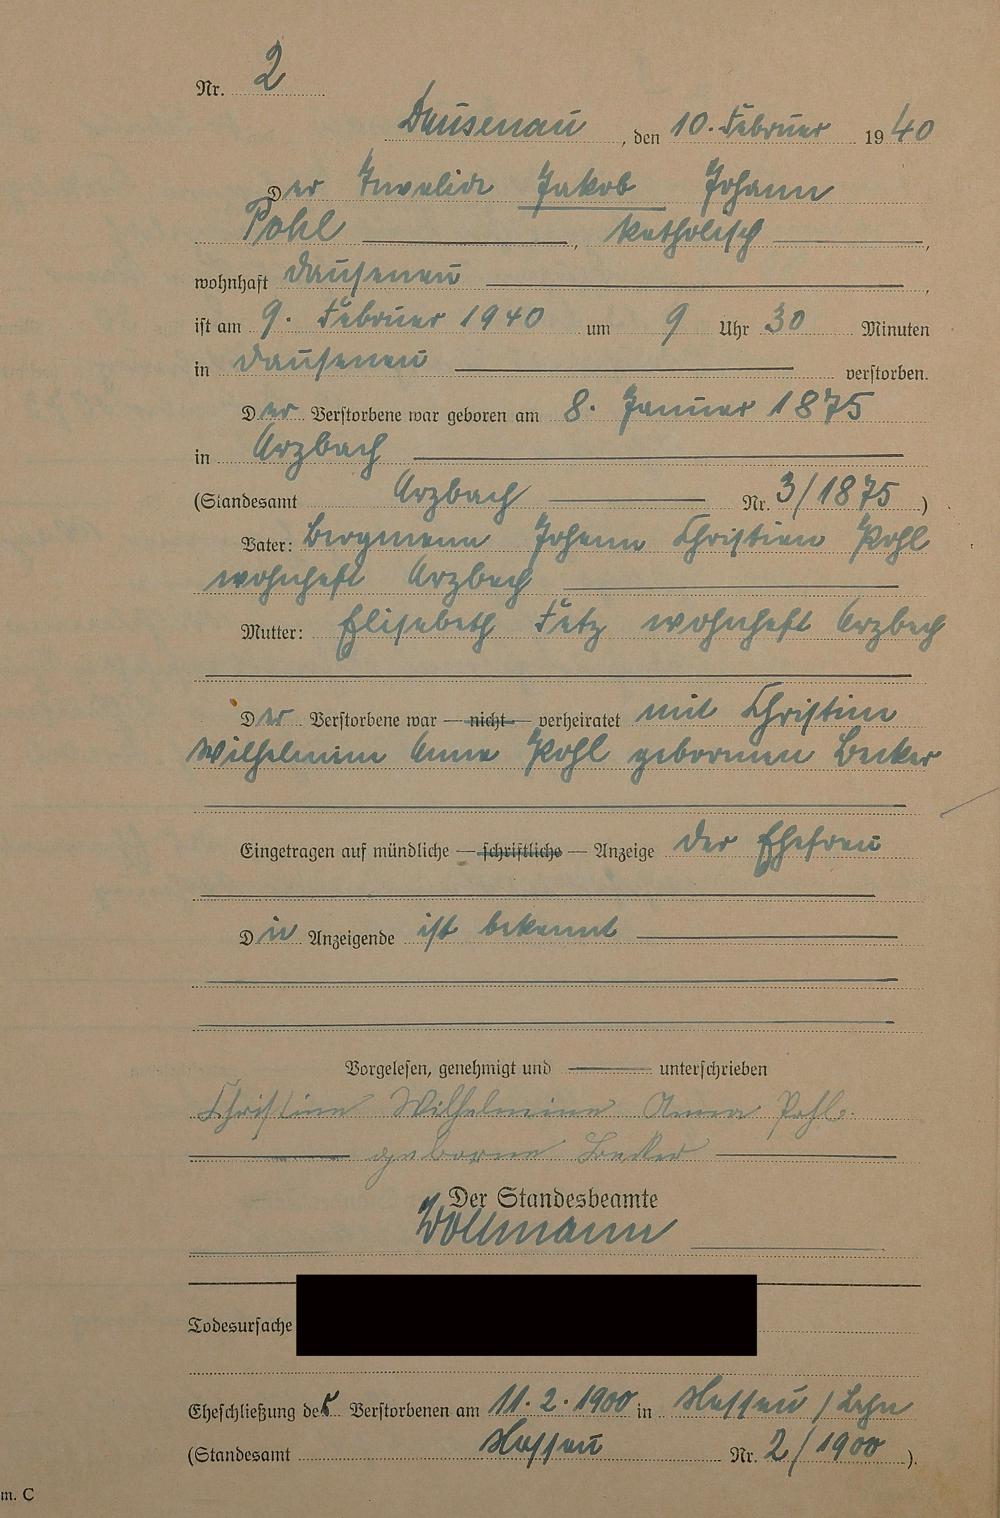 Nr. 2
Dausenau, den 10. Februar 1940
Der Invalide Jakob Johann
Pohl, katholisch,
wohnhaft Dausenau,
ist am 9. Februar 1940 um 9 Uhr 30 Minuten
in Dausenau verstorben.
Der Verstorbene war geboren am 8. Januar 1875
in Arzbach
(Standesamt Arzbach Nr. 3/1875)
Vater: Bergmann Johann Christian Pohl
wohnhaft Arzbach
Mutter: Elisabeth Fetz wohnhaft Arzbach
Der Verstorbene war — nicht — verheiratet mit Christine
Wilhelmine Anna Pohl geborenen Becker
Eingetragen auf mündliche — schriftliche — Anzeige der Ehefrau
Die Anzeigende ist bekannt
Vorgelesen, genehmigt und unterschrieben
Christine Wilhelmine Anna Pohl
geborne Becker
Der Standesbeamte
Wollmann
Todesursache
Eheschließung des Verstorbenen am 11.2.1900 in Nassau / Lahn
(Standesamt Nassau Nr. 2/1900).
m. C